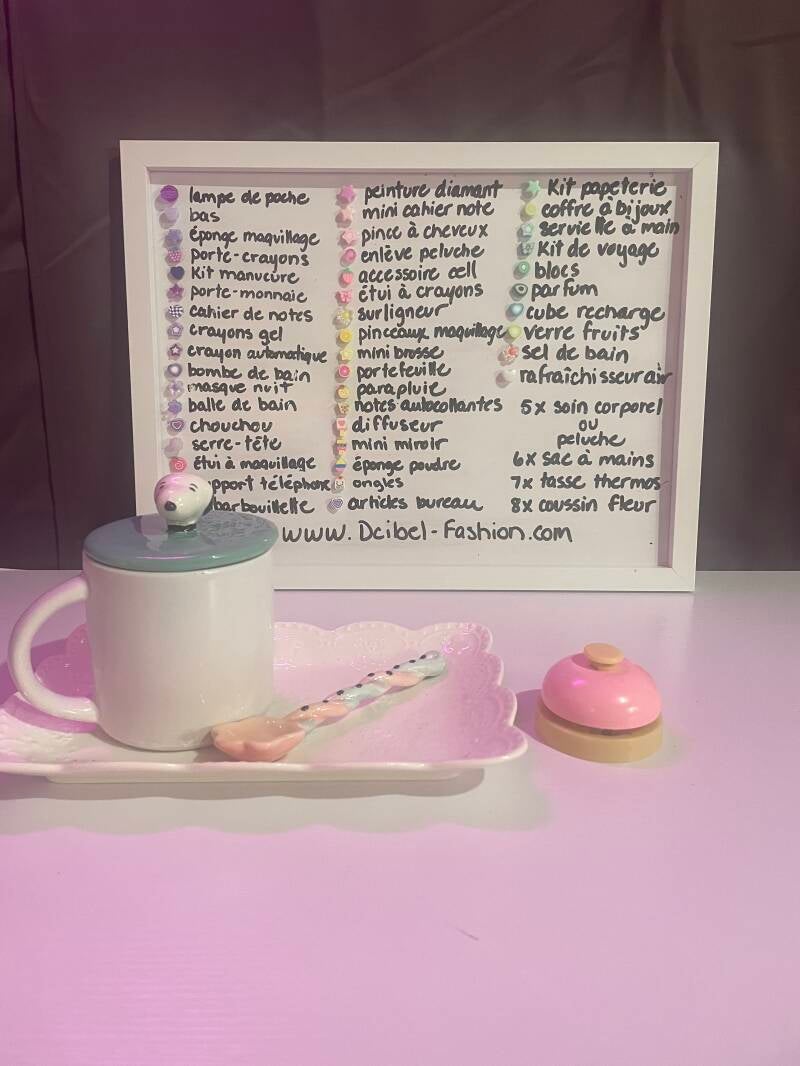 lampe de poche
bas
éponge maquillage
porte-crayons
Kit manucure
porte-monnaie
cahier de notes
crayons gel
crayon automatique
bombe de bain
masque nuit
balle de bain
chouchou
serre-tête
étui à maquillage
upport téléphone
barbouillette
peinture diamant
mini cahier note
pince à cheveux
enlève peluche
accessoire cell
étui à crayons
surligneur
pinceaux maquillage
mini brosse
portefeuille
parapluie
notes autocollantes
diffuseur
mini miroir
éponge poudre
ongles
articles bureau
Kit papeterie
coffre à bijoux
serviette à main
Kit de voyage
blocs
parfum
cube recharge
verre fruits
sel de bain
rafraîchisseur air
5x soin corporel
ou
peluche
6x sac à mains
7x tasse thermos
8x coussin fleur
www.Dcibel-Fashion.com